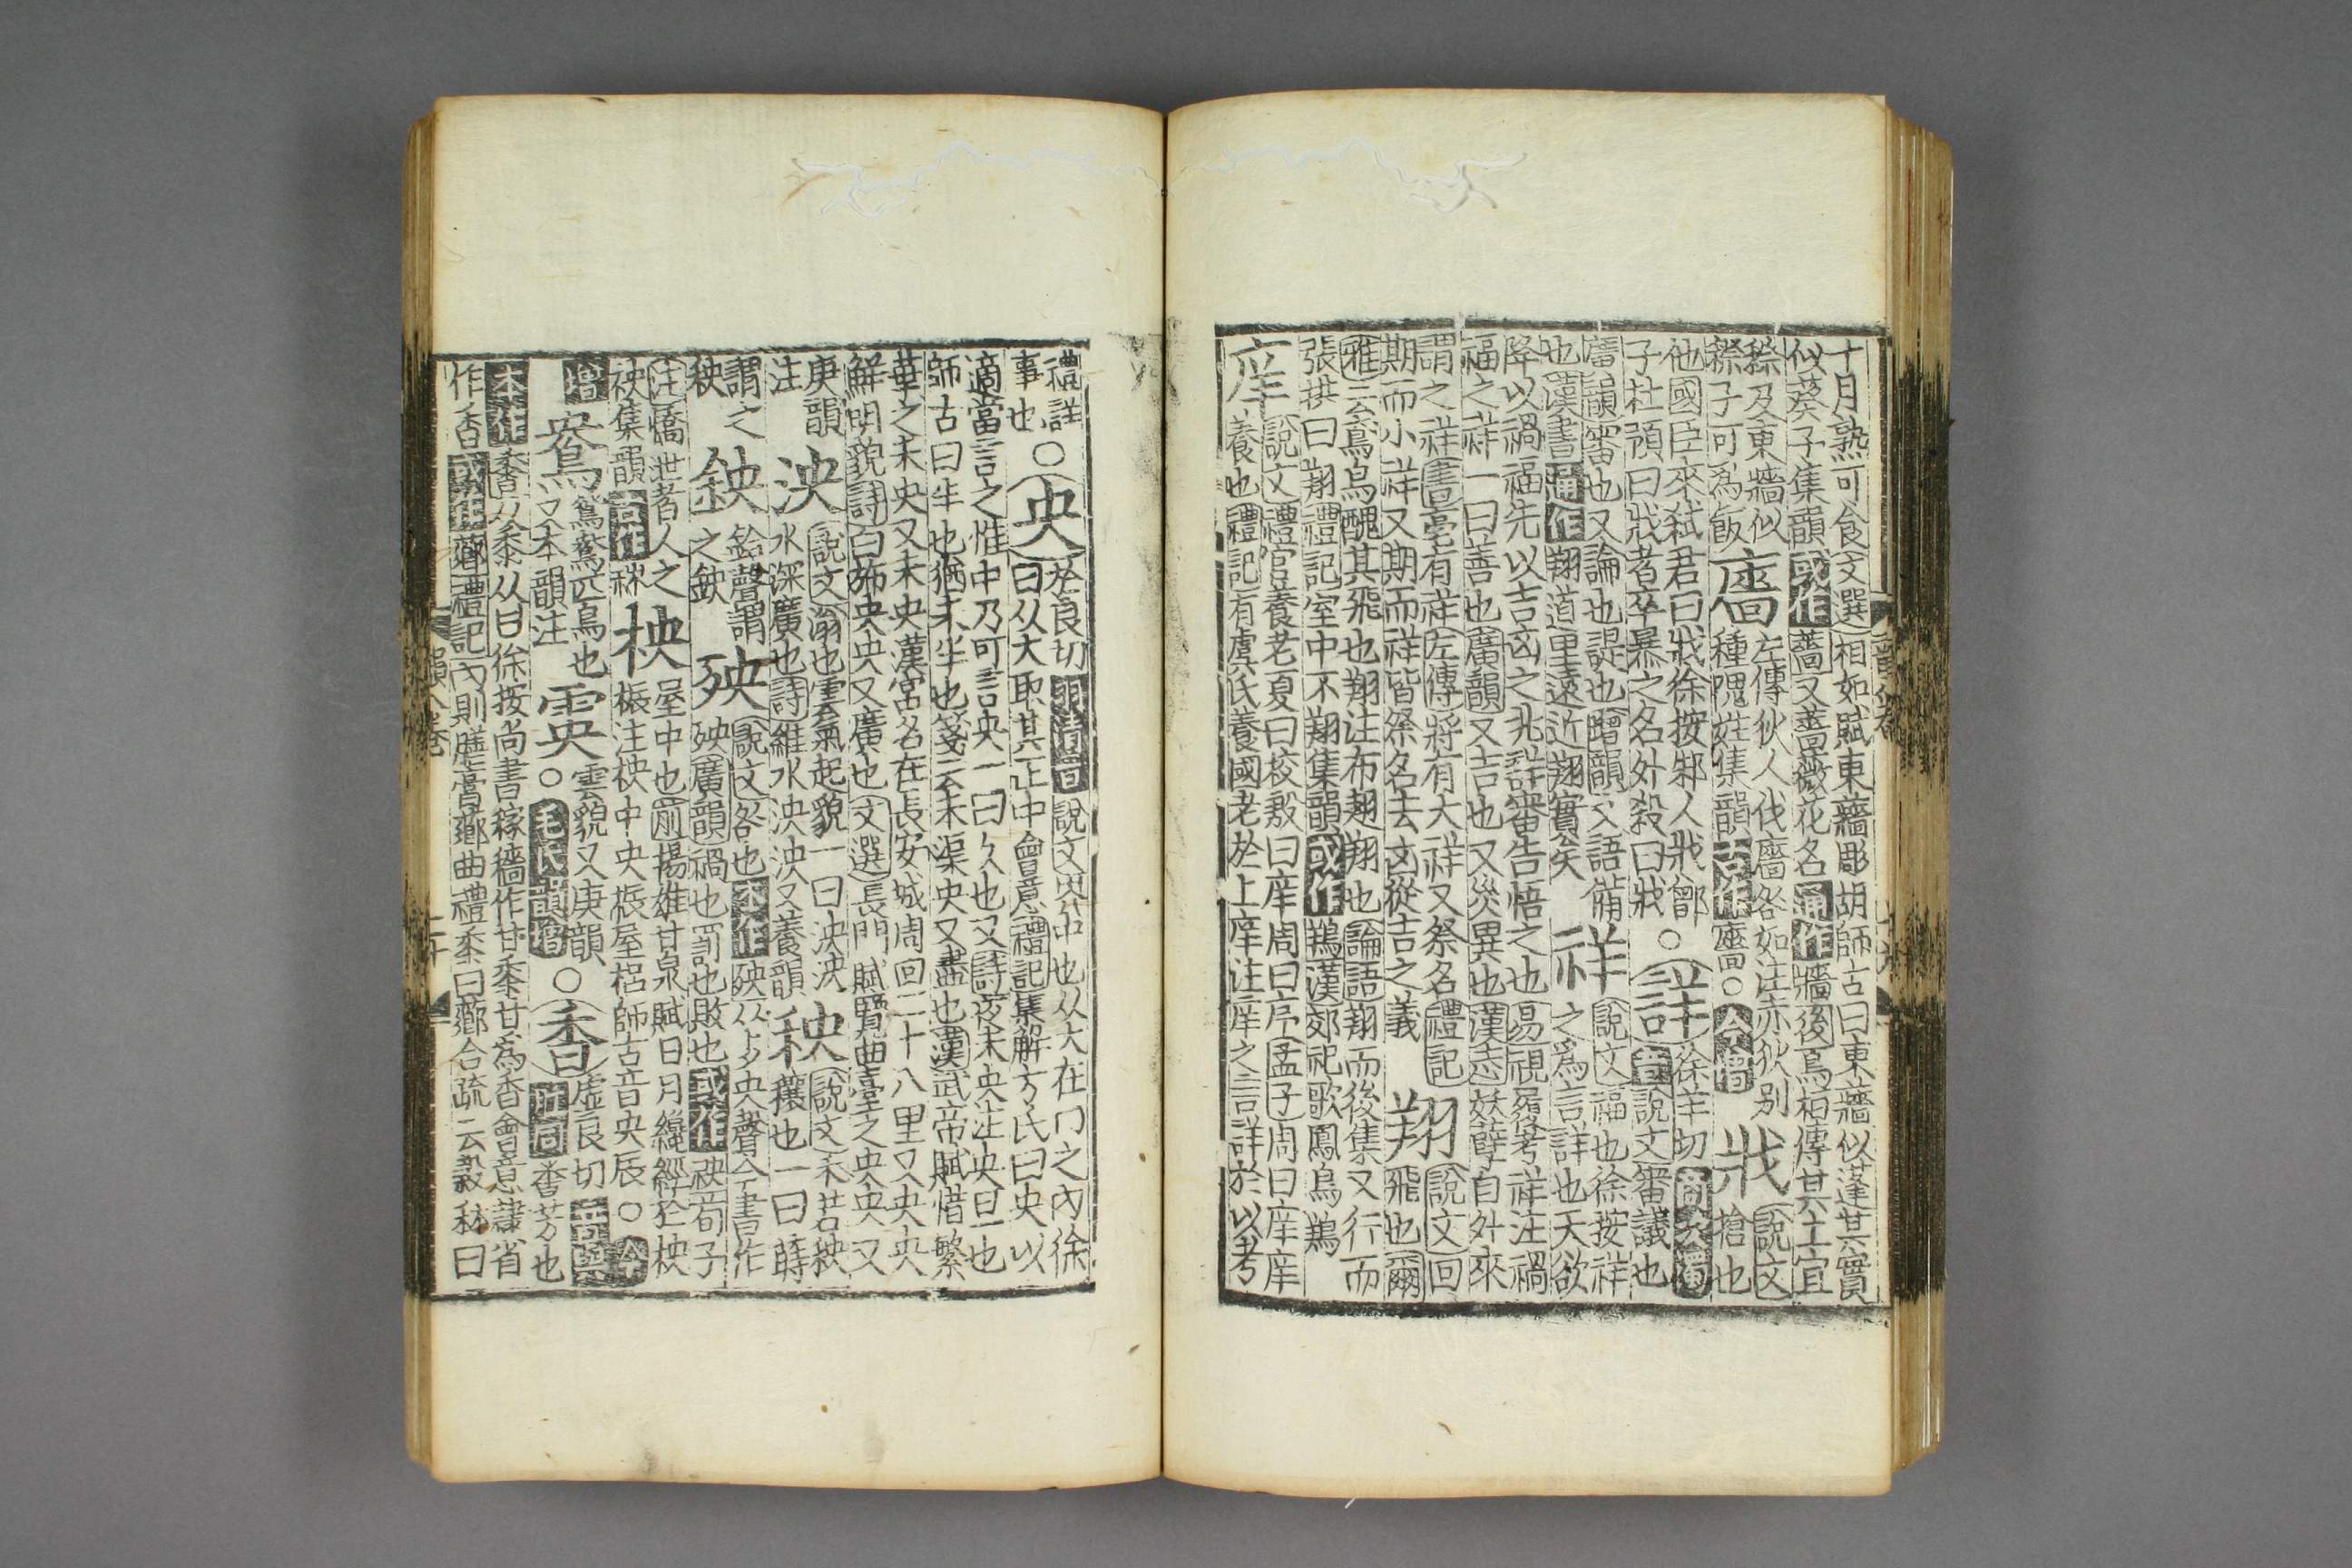 十月熟可食文選相如賦東蘠彫胡師古曰東蘠似蓬其實
似葵子集韻或作薔又薔薇花名通作牆後烏桓傳其土宜
穄及東牆似
穄子可爲飯
廧
左傳狄人伐廧咎如注赤狄別
種隗姓集韻古作○今增
戕
說文
搶也
他國臣來弒君曰戕徐按邾人戕鄫
子杜預曰戕者卒暴之名外殺曰戕
○詳
徐羊切商次濁
音說文審議也
廣韻審也又論也諟也增韻又語備
也漢書通作翔道里遠近翔實矣
祥
說文福也徐按祥
之爲言詳也天欲
降以禍福先以吉凶之兆詳審告悟之也易視履考祥注禍
福之祥一曰善也廣韻又吉也又災異也漢志妖孽自外來
謂之祥書亳有祥左傳將有大祥又祭名禮記
期而小祥又期而祥皆祭名去凶從吉之義
翔
說文回
飛也爾
雅云鳶烏醜其飛也翔注布翅翔也論語翔而後集又行而
張拱曰翔禮記室中不翔集韻或作鴹漢郊祀歌鳳鳥鴹
庠
說文禮官養老夏曰校殷曰庠周曰序孟子周曰庠庠
養也禮記有虞氏養國老於上庠注庠之言詳於以考
禮詳
事也
○央
於良切羽清音說文央中也从大在冂之內徐
曰从大取其正中會意禮記集解方氏曰央以
適當言之惟中乃可言央一曰久也又詩夜未央注央旦也
師古曰半也猶未半也箋云未渠央又盡也漢武帝賦惜繁
華之未央又未央漢宮名在長安城周回二十八里又央央
鮮明貌詩白旆央央又廣也文選長門賦覽曲臺之央央又
庚韻
注
泱
說文滃也雲氣起貌一曰泱泱
水深廣也詩維水泱泱又養韻
秧
說文禾若秧
穰也一曰蒔
謂之
秧
鉠
鈴聲謂
之鉠
殃
說文咎也本作殃从歺央聲今書作
殃廣韻禍也罰也敗也或作祅荀子
注憍泄者人之
殃集韻古作
柍
屋中也前揚雄甘泉賦日月纔經於柍
桭注柍中央桭屋梠師古音央辰○今
增
鴦
鴛鴦匹鳥也
又本韻注
霙
雲貌又庚韻
○毛氏韻增
○香
虛良切音與
羌同香芳也
本作𪏽从黍从甘徐按尚書稼穡作甘黍甘爲香會意隷省
作香或作薌禮記內則膳膏薌曲禮黍曰薌合疏云穀秫曰
韻八卷
二十